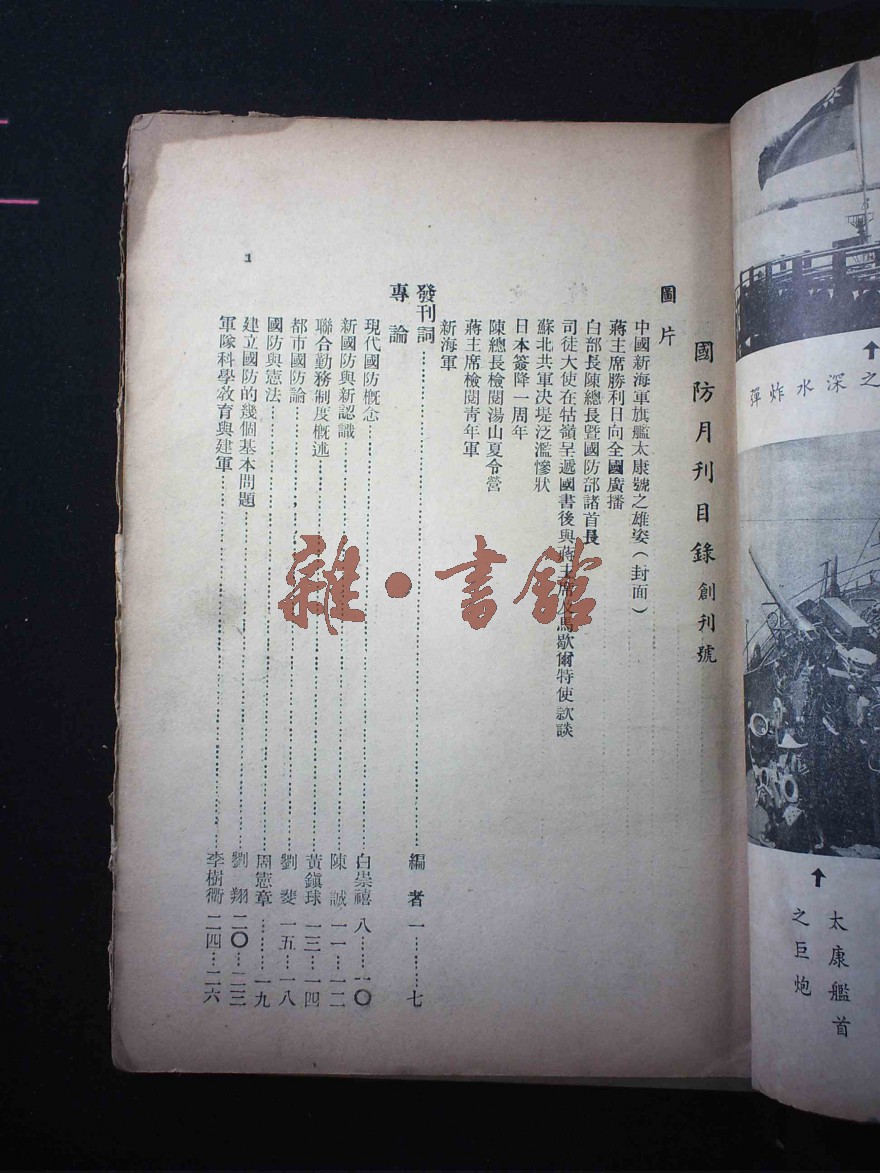 國防月刊目錄 創刊號
圖片
中國新海軍旗艦太康號之雄姿(封面)
蔣主席勝利日向全國廣播
白部長陳總長暨國防部諸首長
司徒大使在牯嶺呈遞國書後與蔣主席及馬歇爾特使款談
蘇北共軍決堤泛濫慘狀
日本簽降一周年
陳總長檢閱湯山夏令營
蔣主席檢閱青年軍
新海軍
發刊詞……編者 一……七
專論
現代國防概念……白崇禧 八……一〇
新國防與新認識……陳誠 一一…一二
聯合勤務制度概述……黃鎭球 一三…一四
都市國防論……劉斐 一五…一八
國防與憲法……周憲章……一九
建立國防的幾個基本問題……劉翔 二〇…二三
軍隊科學敎育與建軍……李樹衢 二四…二六
1
之深水炸彈
太康艦首
之巨炮
雜·書館